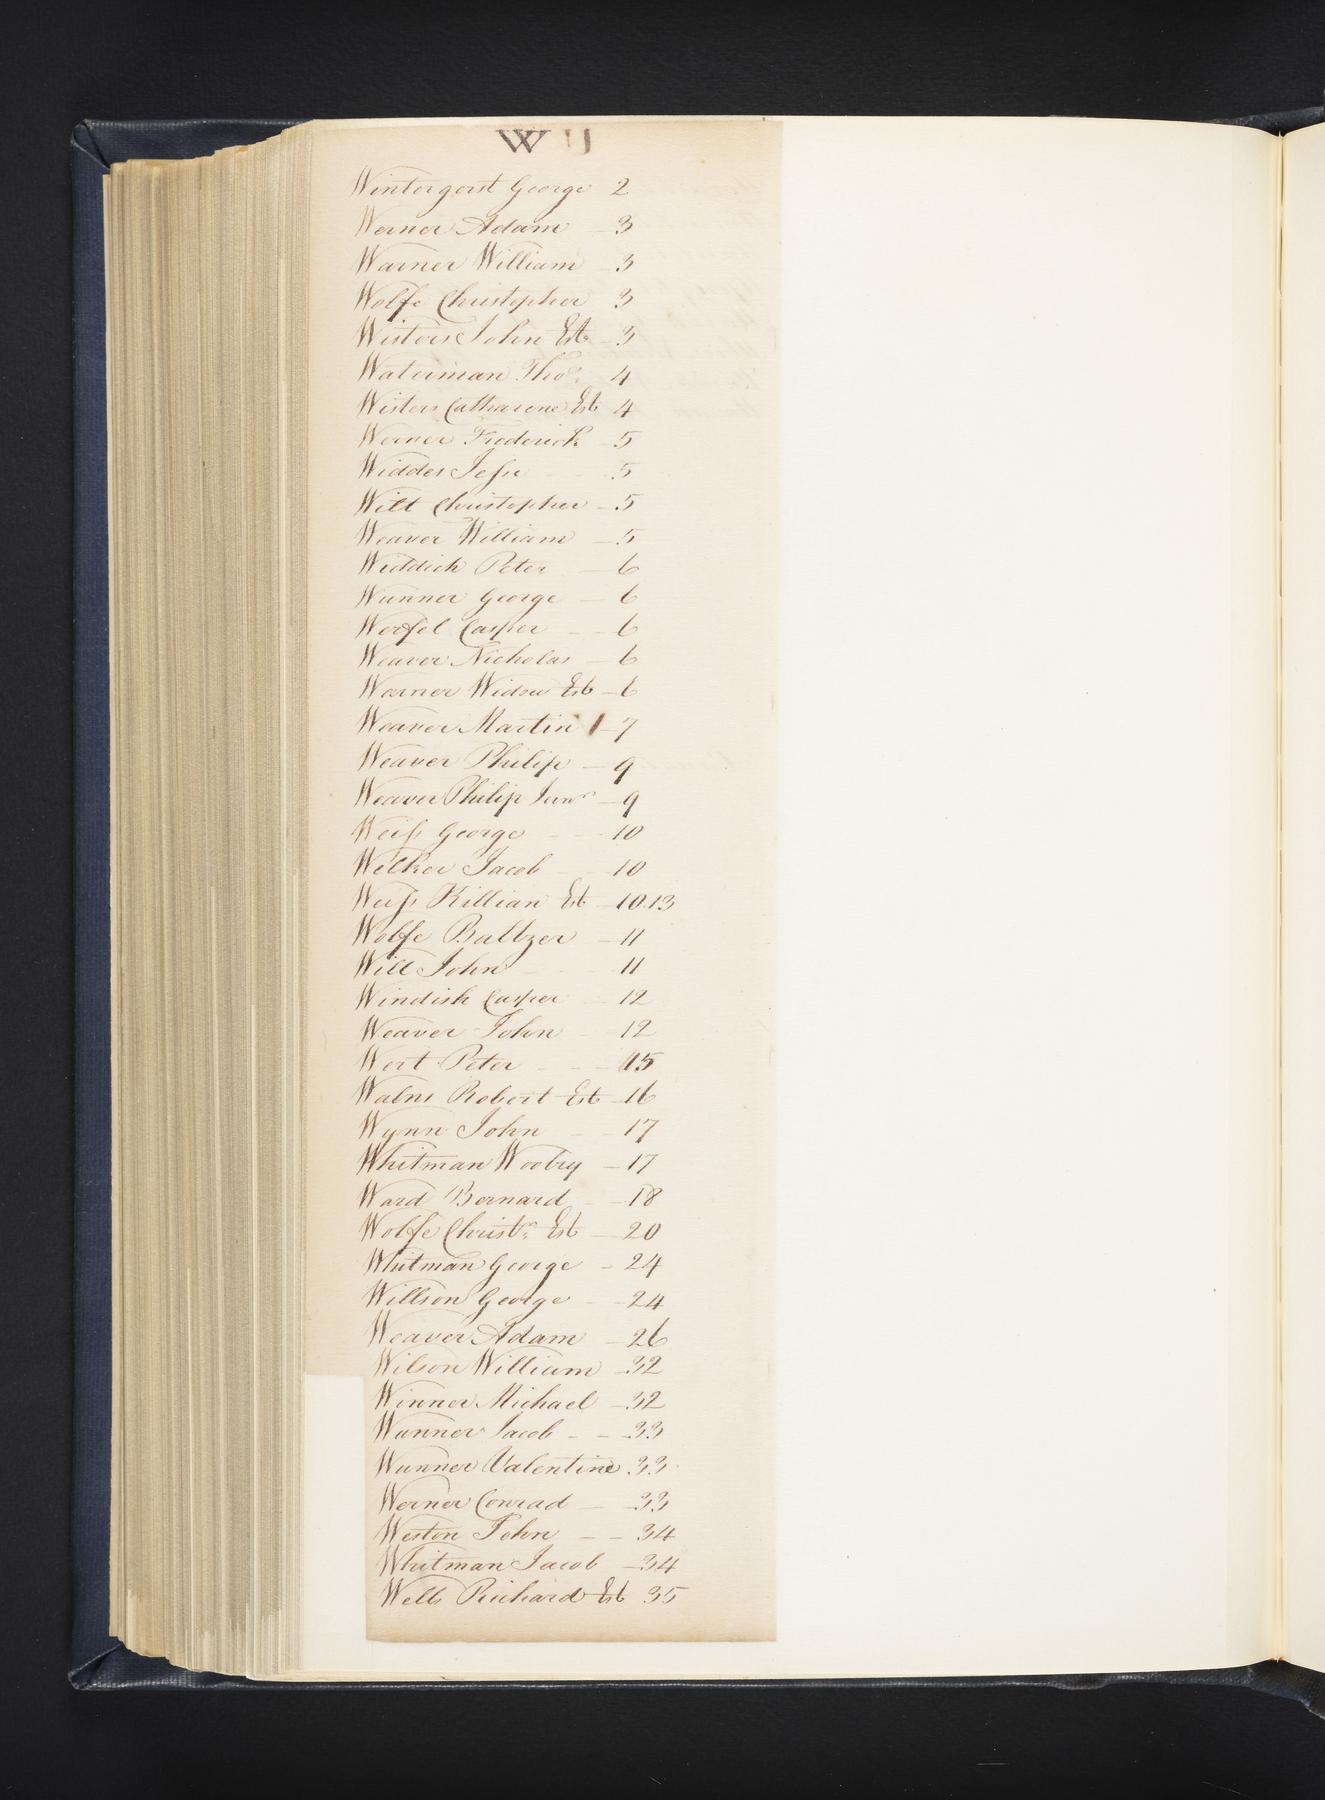 W
Wintergerst George 2
Werner Adam - 3
Warner William - 3
Wolfe Christopher 3
Wisters John Est - 3
Waterman Thos. 4
Wisters Catharene Est 4
Werner Frederick - 5
Widdes Jesse - - 5
Will Christopher - 5
Weaver William - 5
Widdick Peter - 6
Wunner George - 6
Werfel Casper - - 6
Weaver Nicholas - 6
Warner Widow Est - 6
Weaver Martin - 7
Weaver Philip - 9
Weaver Philip Junr - 9
Weiss George - - 10
Welker Jacob - 10
Weiss Killian Est - 10.13
Wolfe Baltzer - 11
Will John - - 11
Windish Casper - 12
Weaver John - 12
Wert Peter - - 15
Walns Robert Est - 16
Wynn John - 17
Whitman Woolry - 17
Ward Bernard - 18
Wolfe Christr. Est - 20
Whitman George - 24
Willson George - - 24
Weaver Adam - 26
Wilson William - 32
Winner Michael - 32
Wunner Jacob - - 33
Wunner Valentine 33
Werner Conrad - - 33
Weston John - - 34
Whitman Jacob - 34
Wells Richard Est 35